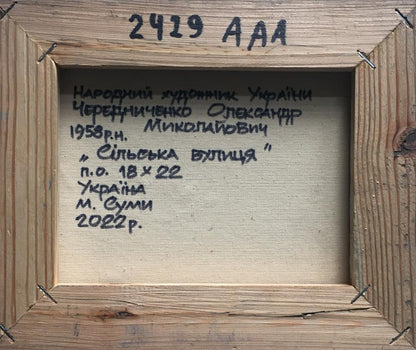 2429 ААА
Народний художник України
Чередниченко Олександр
1958р.н. Миколайович
„Сільська вулиця"
п.о. 18х22
Україна
м. Суми
2022р.